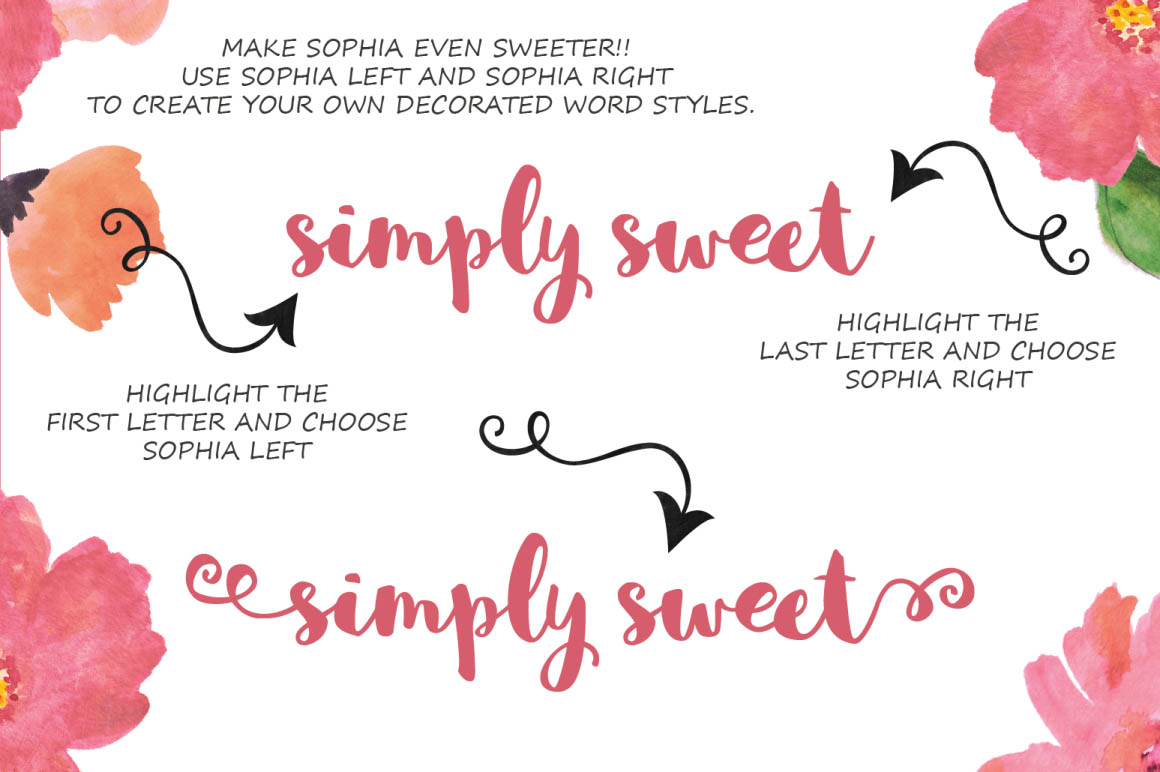 MAKE SOPHIA EVEN SWEETER!!
USE SOPHIA LEFT AND SOPHIA RIGHT
TO CREATE YOUR OWN DECORATED WORD STYLES.
simply sweet
HIGHLIGHT THE
LAST LETTER AND CHOOSE
SOPHIA RIGHT
HIGHLIGHT THE
FIRST LETTER AND CHOOSE
SOPHIA LEFT
simply sweet